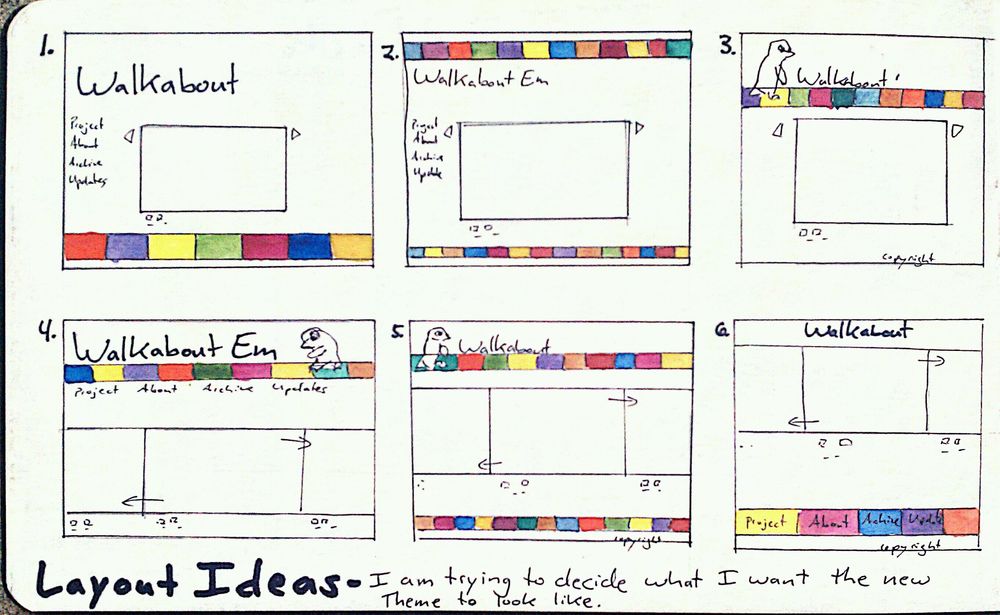 1.
Walkabout
Project
About
Archive
Updates
2.
Walkabout Em
Project
About
Archive
Update
3.
Walkabout
copyright
4.
Walkabout Em
Project About Archive Updates
5.
Walkabout
copyright
6.
Walkabout
Project About Archive Update
copyright
Layout Ideas - I am trying to decide what I want the new
Theme to look like.